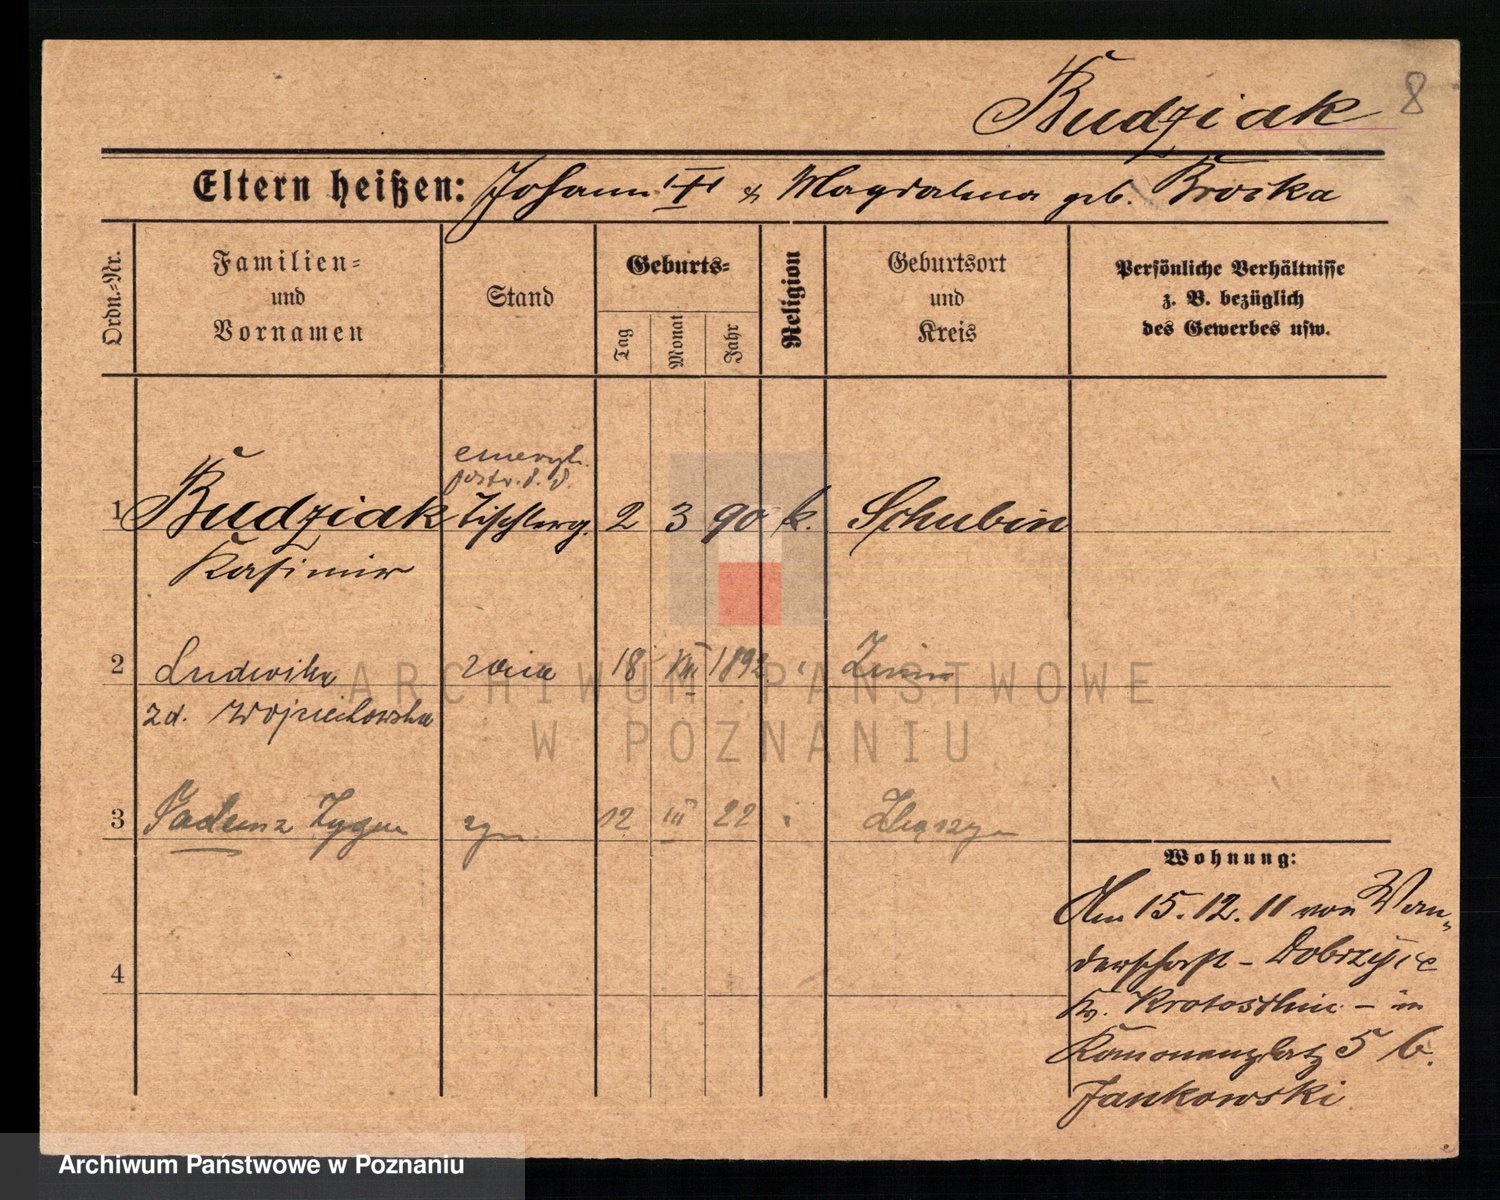 8
Budziak
Eltern heißen: Johann III & Magdalena geb. Broska
Ordn.-Nr.
Familien-
und
Vornamen
Stand
Geburts-
Tag
Monat
Jahr
Religion
Geburtsort
und
Kreis
Persönliche Verhältnisse
z. B. bezüglich
des Gewerbes usw.
1 Budziak Tischlerg. 2 3 90 k. Schubin
Kasimir
2 Ludwika żona 18 VIII 1892 Żnin
zd. Wojciechowska
3 Tadeusz 12 III 22
4
Wohnung:
Am 15.12.11 von Wan-
derschaft - Dobrzyce
Kr. Krotoschin - in
Kanonenplatz 5 b.
Jankowski
ARCHIWUM PAŃSTWOWE
W POZNANIU
Archiwum Państwowe w Poznaniu